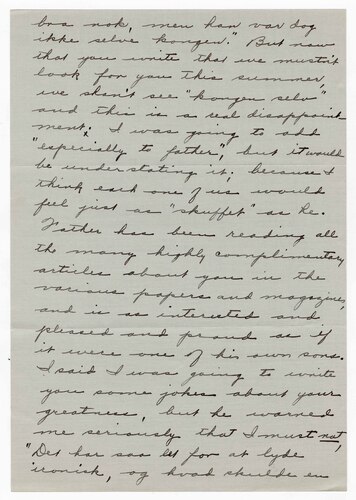 bra nok, men han var dog
ikke selve kongen." But now
that you write that we mustn't
look for you this summer,
we shan't see "kongen selv"
and this is a real disappoint
ment; I was going to add
"especially to father", but it would
be understating it; because I
think each one of us would
feel just as "skuffet" as he.
Father has been reading all
the many highly complimentary
articles about you in the
various papers and magazines,
and is as interested and
plessed and proud as if
it were one of his own sons.
I said I was going to write
you some jokes about your
greatness, but he warned
me seriously that I must not,
"Det har saa let for at lyde
ironisk, og hvad skulde en